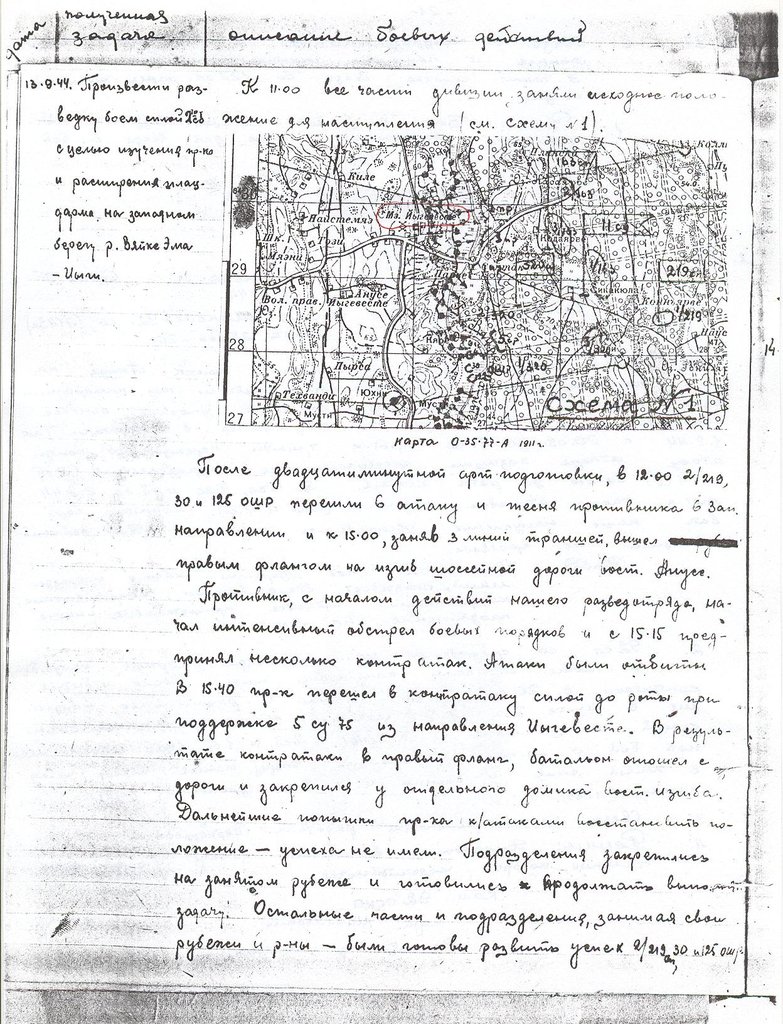 дата
полученная
задача
описание боевых действий
13.9.44. Произвести раз-
ведку боем силой 2/219 сб
с целью изучения пр-ка
и расширения плац-
дарма на западном
берегу р. Вяйке Эма
– Иыги.
К 11.00 все части дивизии заняли исходное поло-
жение для наступления (см. схему №1).
Киле
30
Найстемяэ
Им. Иыгевесте
Тэзи
Шк.
Мяэни
29
Анусе
Вол. прав. Иыгевесте
219
1/219
28
Пырса
Техванди
Юхни
Мусти
27
Схема №1
14.
карта О-35-77-А 1911г.
После двадцатиминутной арт подготовки, в 12.00 2/219,
30 и 125 ОШР перешли в атаку и тесня противника в Зап.
направлении и к 15.00, заняв 3 линии траншей, вышел
правым флангом на изгиб шоссейной дороги вост. Анусе.
Противник, с началом действий нашего разведотряда, на-
чал интенсивный обстрел боевых порядков и с 15.15 пред-
принял несколько контратак. Атаки были отбиты
В 15.40 пр-к перешел в контратаку силой до роты при
поддержке 5 су 75 из направления Иыгевесте. В резуль-
тате контратаки в правый фланг, батальон отошел с
дороги и закрепился у отдельного домика вост. изгиба.
Дальнейшие попытки пр-ка к/атаками восстановить по-
ложение – успеха не имели. Подразделения закрепились
на занятом рубеже и готовились продолжать выполнять
задачу. Остальные части и подразделения, занимая свои
рубежи и р-ны – были готовы развить успех 2/219 сп, 30 и 125 ОШР.